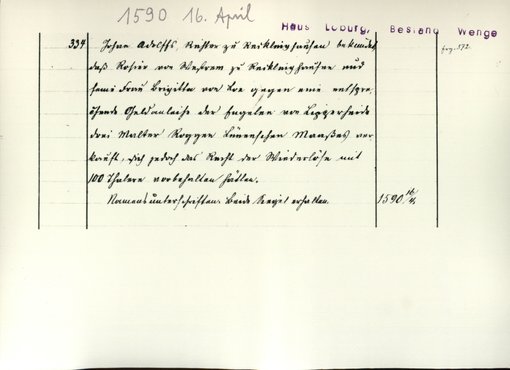 1590 16. April
Haus Loburg, Bestand Wenge
334 Johan Adolffs, Richter zu Recklinghausen bekundet, fasz. 172
daß Rosier von Westrem zu Recklinghausen und
seine Frau Brigitta von Loe gegen eine entspre-
chende Geldanleihe der Engelen von Lipperheide
drei Malter Roggen Lünenschen Maaßes ver-
kauft, sich jedoch das Recht der Wiederlöse mit
100 Thalern vorbehalten hätten.
Namensunterschriften. Beide Siegel erhalten. 1590 16/4